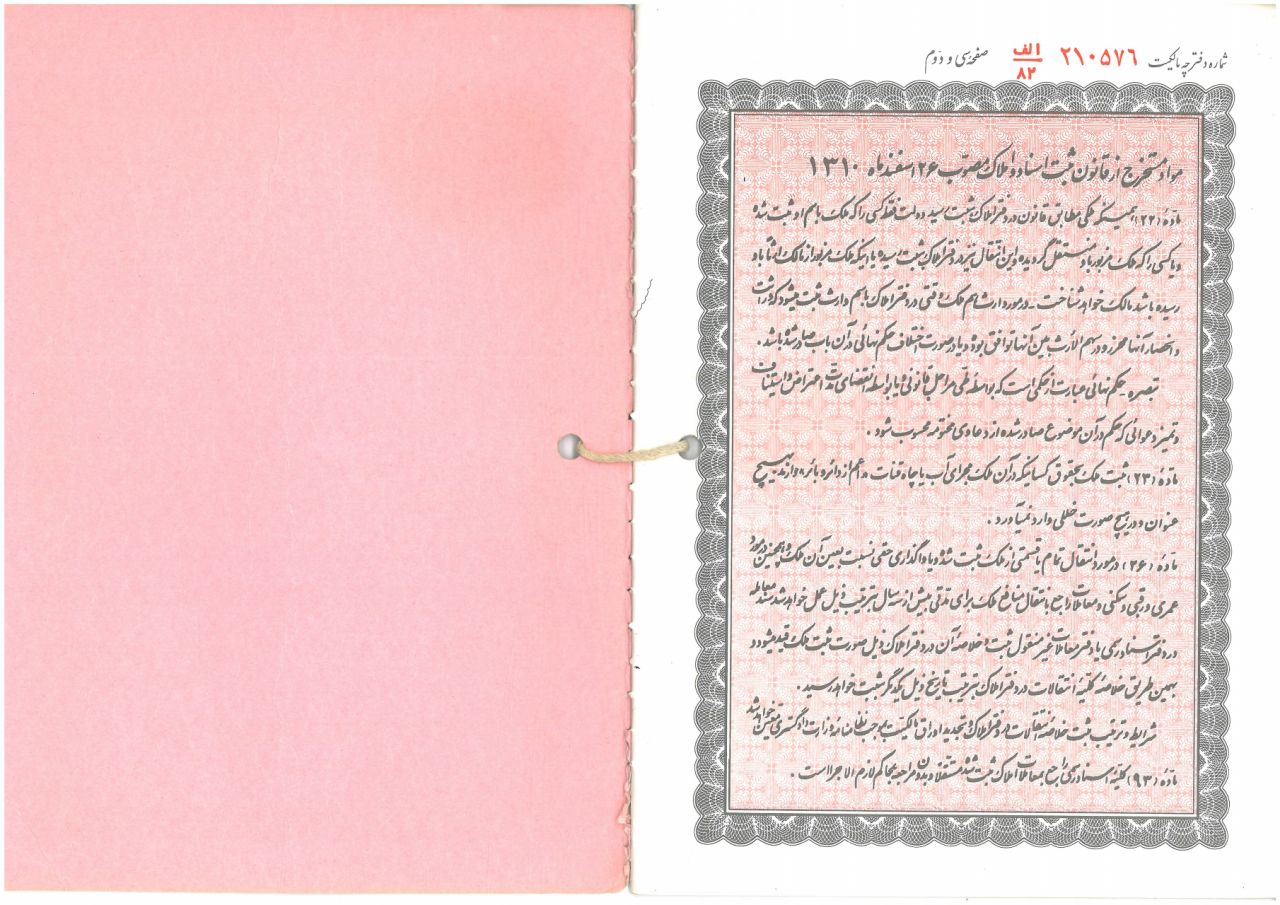 شماره دفترچه مالکیت ۲۱۰۵۷۶ الف/۸۲ صفحهٔ سی و دوم
مواد مستخرج از قانون ثبت اسناد و املاک مصوب ۲۶ اسفندماه ۱۳۱۰
مادهٔ (۲۲) همینکه ملکی مطابق قانون در دفتر املاک بثبت رسید دولت فقط کسی را که ملک باسم او ثبت شده
و یا کسی را که ملک مزبور باو منتقل گردیده و این انتقال نیز در دفتر املاک بثبت رسیده یا اینکه ملک مزبور از مالک ارثاً باو
رسیده باشد مالک خواهد شناخت - در مورد ارث هم ملک وقتی در دفتر املاک باسم وارث ثبت میشود که وراثت
و انحصار آنها محرز و در سهم الارث بین آنها توافق بوده و یا در صورت اختلاف حکم نهائی در آن باب صادر شده باشد .
تبصره - حکم نهائی عبارت از حکمی است که بواسطه طی مراحل قانونی و یا بواسطه انقضای مدت اعتراض و استیناف
و تمیز دعوائی که حکم در آن موضوع صادر شده از دعاوی مختومه محسوب شود .
مادهٔ (۲۳) ثبت ملک بحقوق کسانیکه در آن ملک مجرای آب یا چاه قنات دارند اعم از دائر و بائر بهیچ
عنوان و در هیچ صورت خللی وارد نمیآورد .
مادهٔ (۲۶) در مورد انتقال تمام یا قسمتی از ملک ثبت شده و یا واگذاری حقی نسبت بعین آن ملک و همچنین در مورد
عمری و رقبی و سکنی و معاملات راجع بانتقال منافع ملک برای مدتی بیش از سه سال بترتیب ذیل عمل خواهد شد سند معامله
در دفتر اسناد رسمی یا دفتر معاملات غیر منقول ثبت و خلاصه آن در دفتر املاک ذیل صورت ثبت ملک قید میشود و
بهمین طریق خلاصه کلیه انتقالات در دفتر املاک بترتیب تاریخ ذیل یکدیگر بثبت خواهد رسید .
شرایط و ترتیب ثبت خلاصه انتقالات در دفتر املاک و تجدید اوراق مالکیت بموجب نظامنامه وزارت دادگستری معین خواهد شد
مادهٔ (۹۳) کلیه اسناد رسمی راجع بمعاملات املاک ثبت شده مستقلاً و بدون مراجعه بمحاکم لازم الاجرا است .